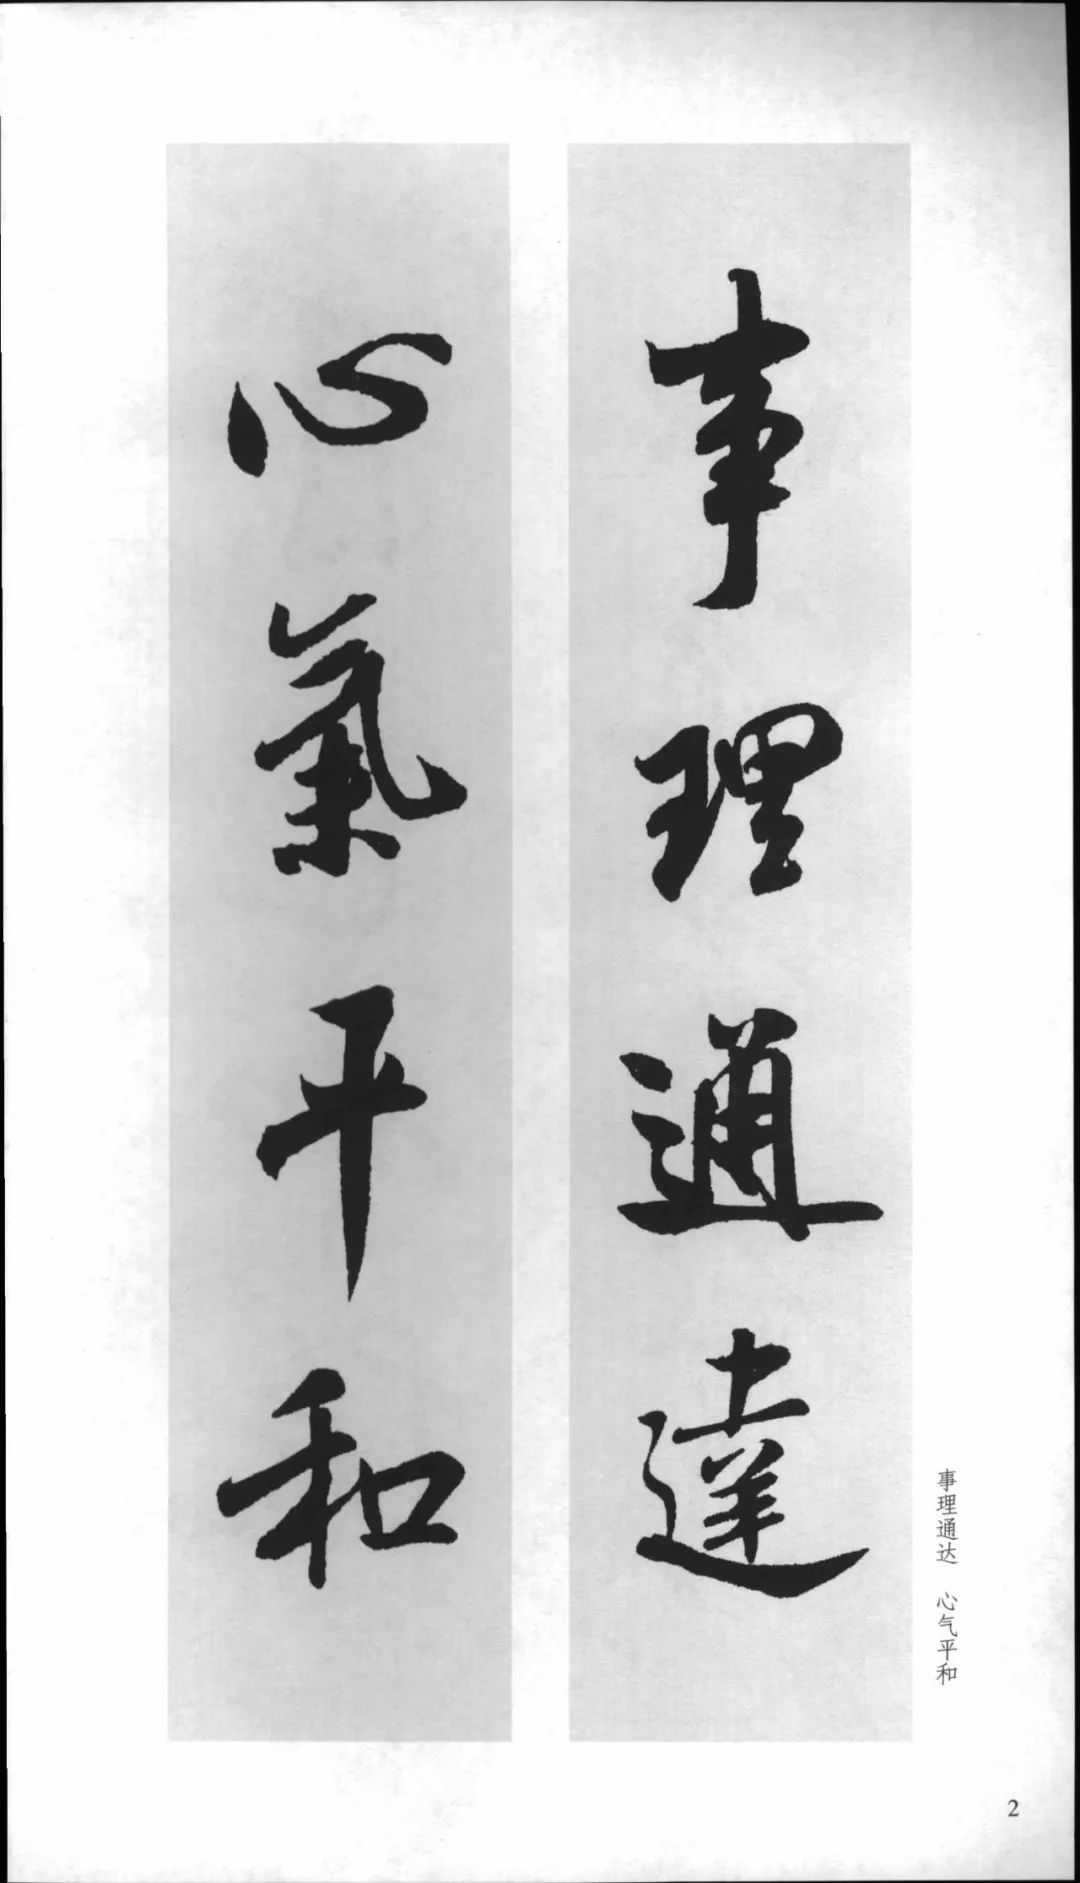 事理通達
心氣平和
事理通达 心气平和
2